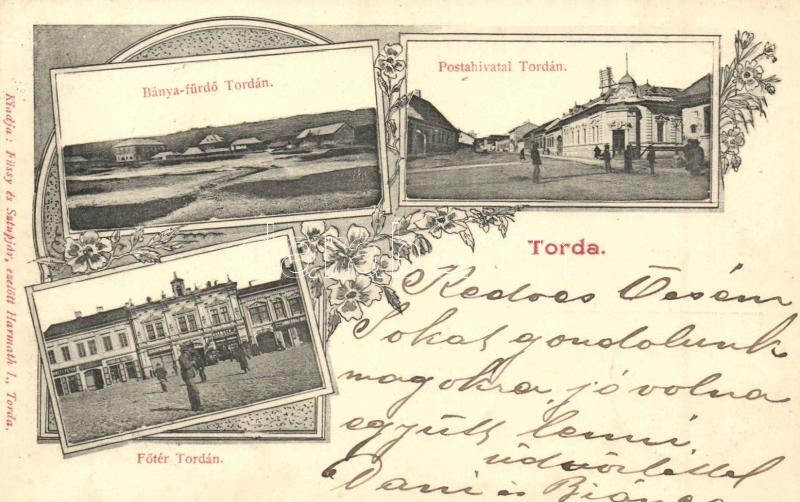 Bánya-fürdő Tordán.
Postahivatal Tordán.
Torda.
Kedves Öcsém
Sokat gondolunk
magokra, jó volna
együtt lenni
üdvözlettel
Dani és Bianca
Főtér Tordán.
Kiadja: Füssy és Sztupjár, ezelőtt Harmath I., Torda.